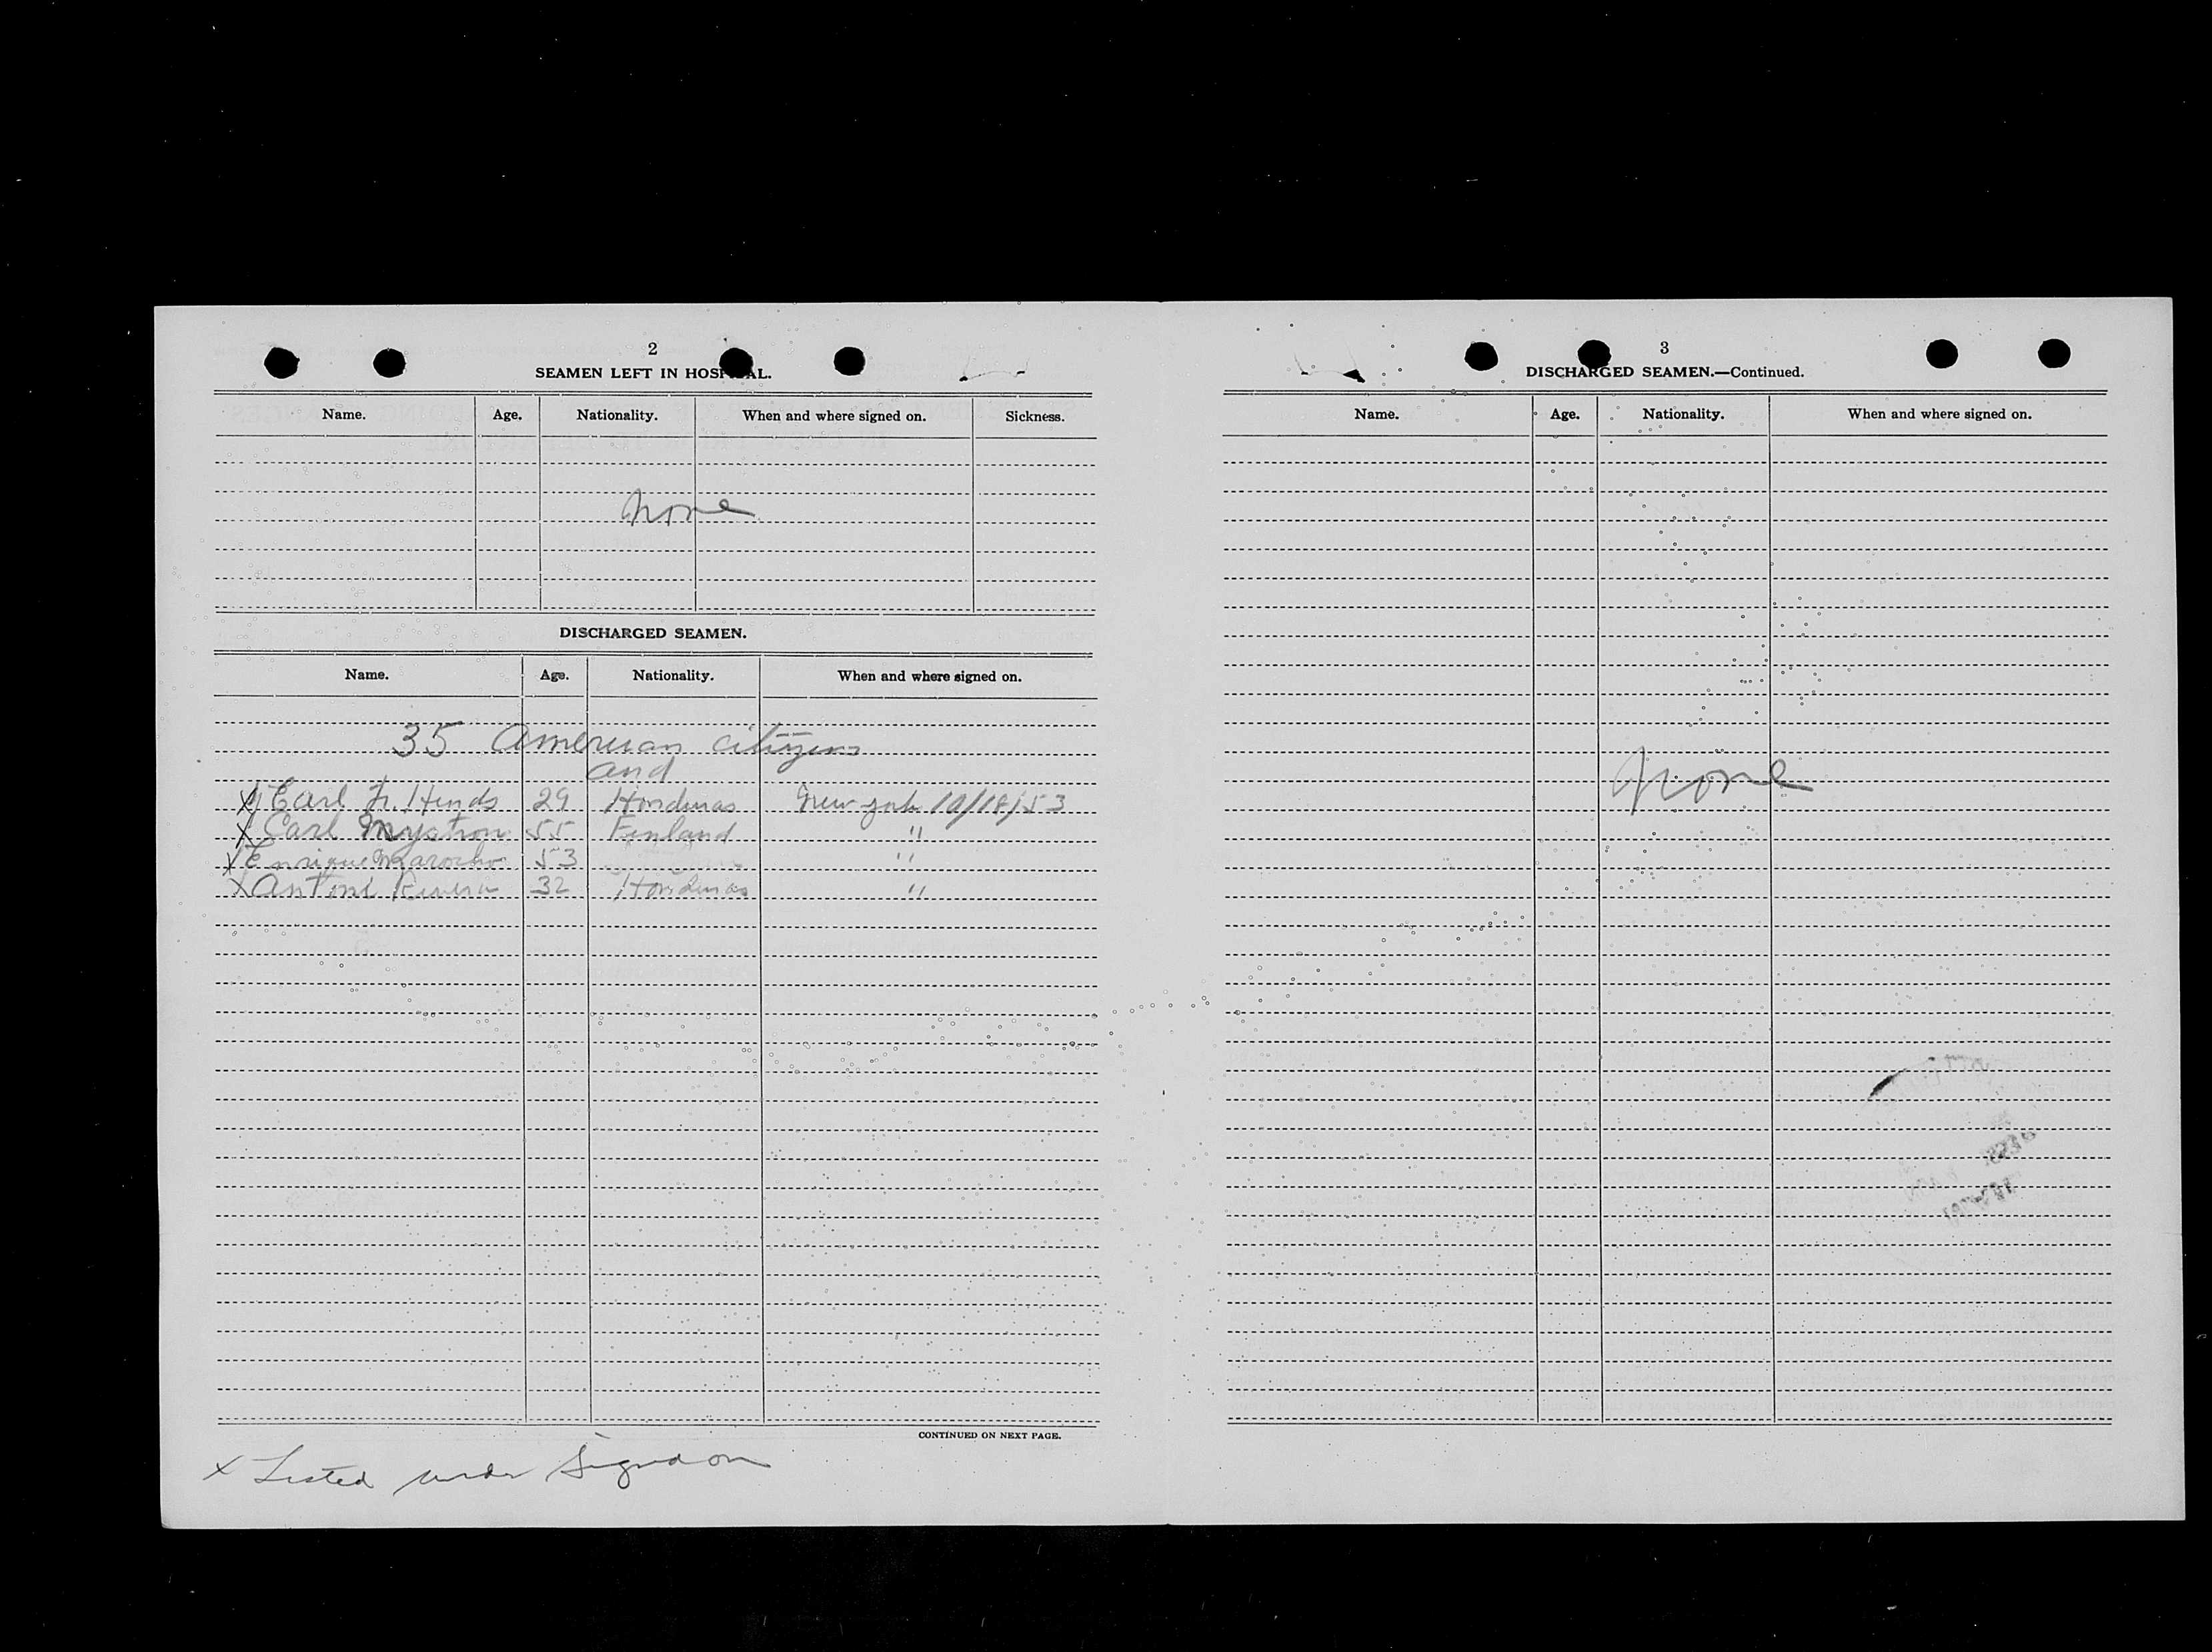 2
SEAMEN LEFT IN HOSPITAL.
Name. Age. Nationality. When and where signed on. Sickness.
None
DISCHARGED SEAMEN.
Name. Age. Nationality. When and where signed on.
35 American citizens
and
X Earl Hinds 29 Honduras New York 10/18/53
X Carl 55 Finland "
X Enrique 53 "
X Rivera 32 Honduras "
CONTINUED ON NEXT PAGE.
X Listed under Signed on
3
DISCHARGED SEAMEN.—Continued.
Name. Age. Nationality. When and where signed on.
None